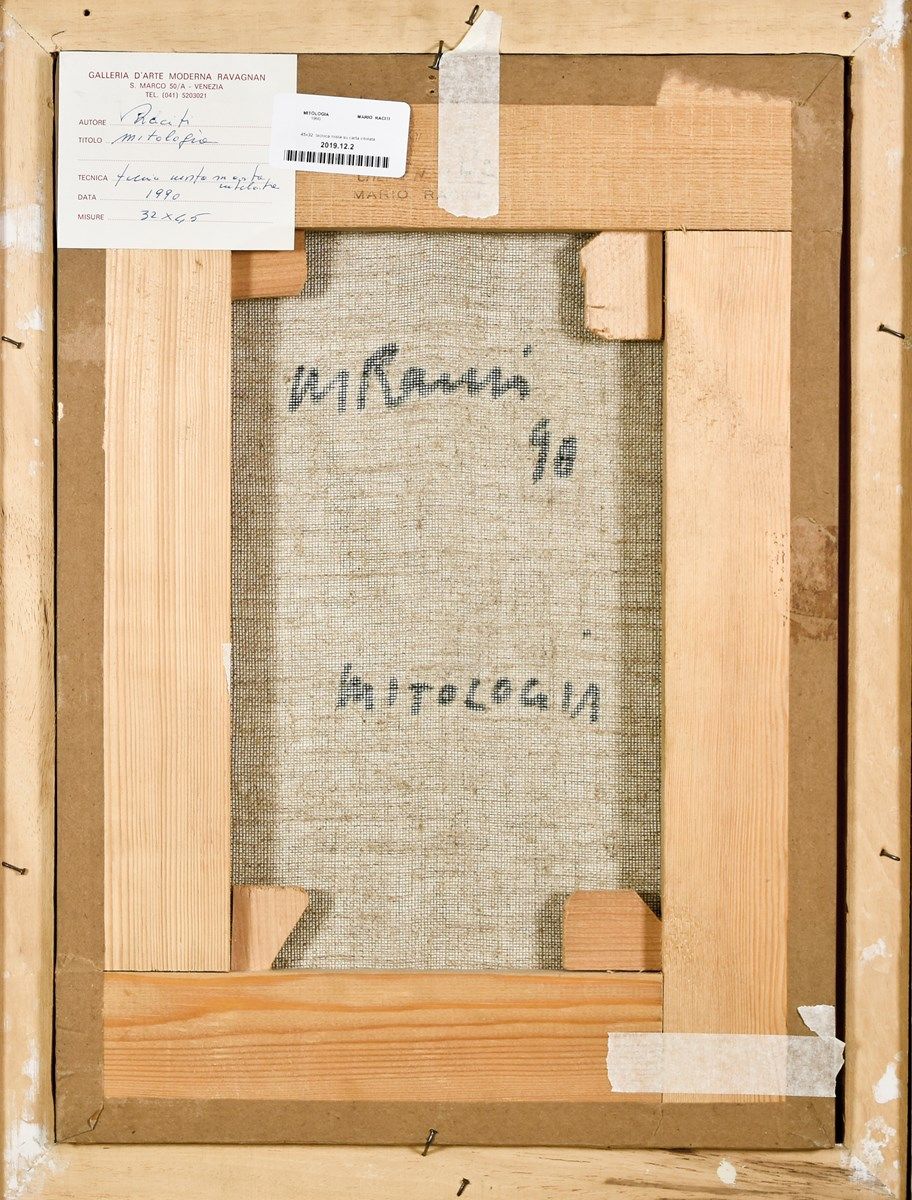 GALLERIA D'ARTE MODERNA RAVAGNAN
S. MARCO 50/A - VENEZIA
TEL. (041) 5203021
AUTORE Raciti
TITOLO mitologia
TECNICA mista
DATA 1990
MISURE 32 x 45
MITOLOGIA MARIO RACITI
1990
45x32 tecnica mista su carta intelata
2019.12.2
MARIO RA
M Raciti
90
MITOLOGIA